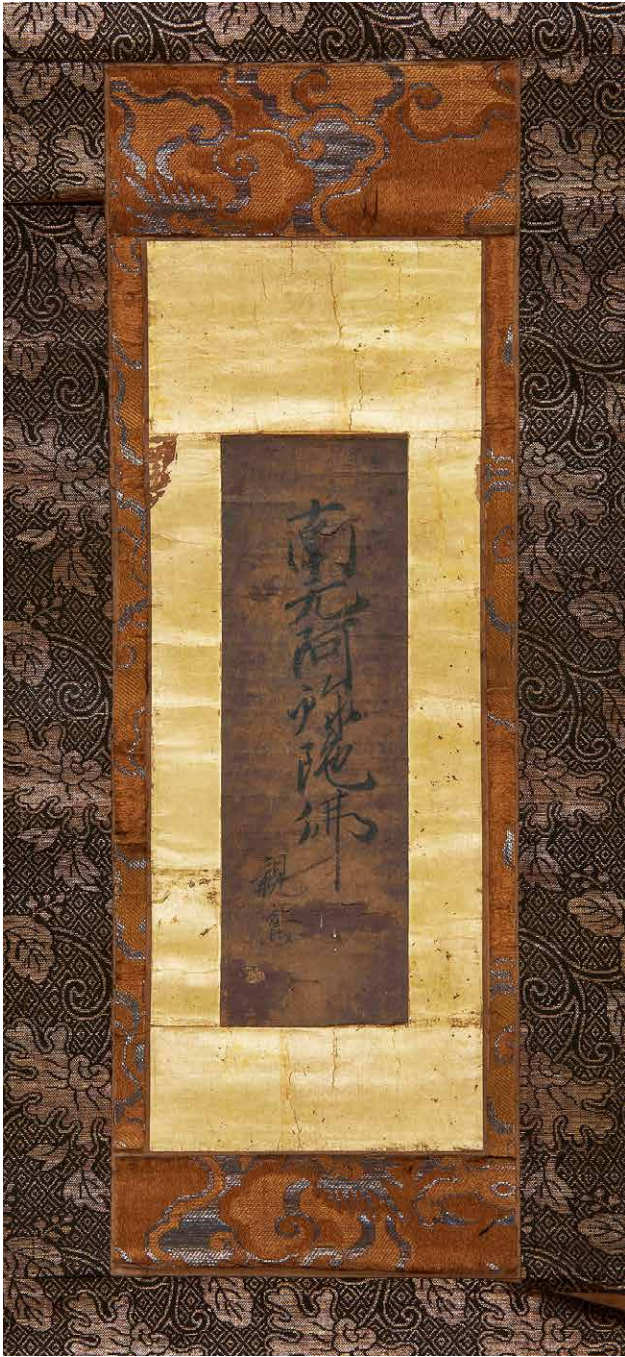 南无阿弥陀佛
親鸞